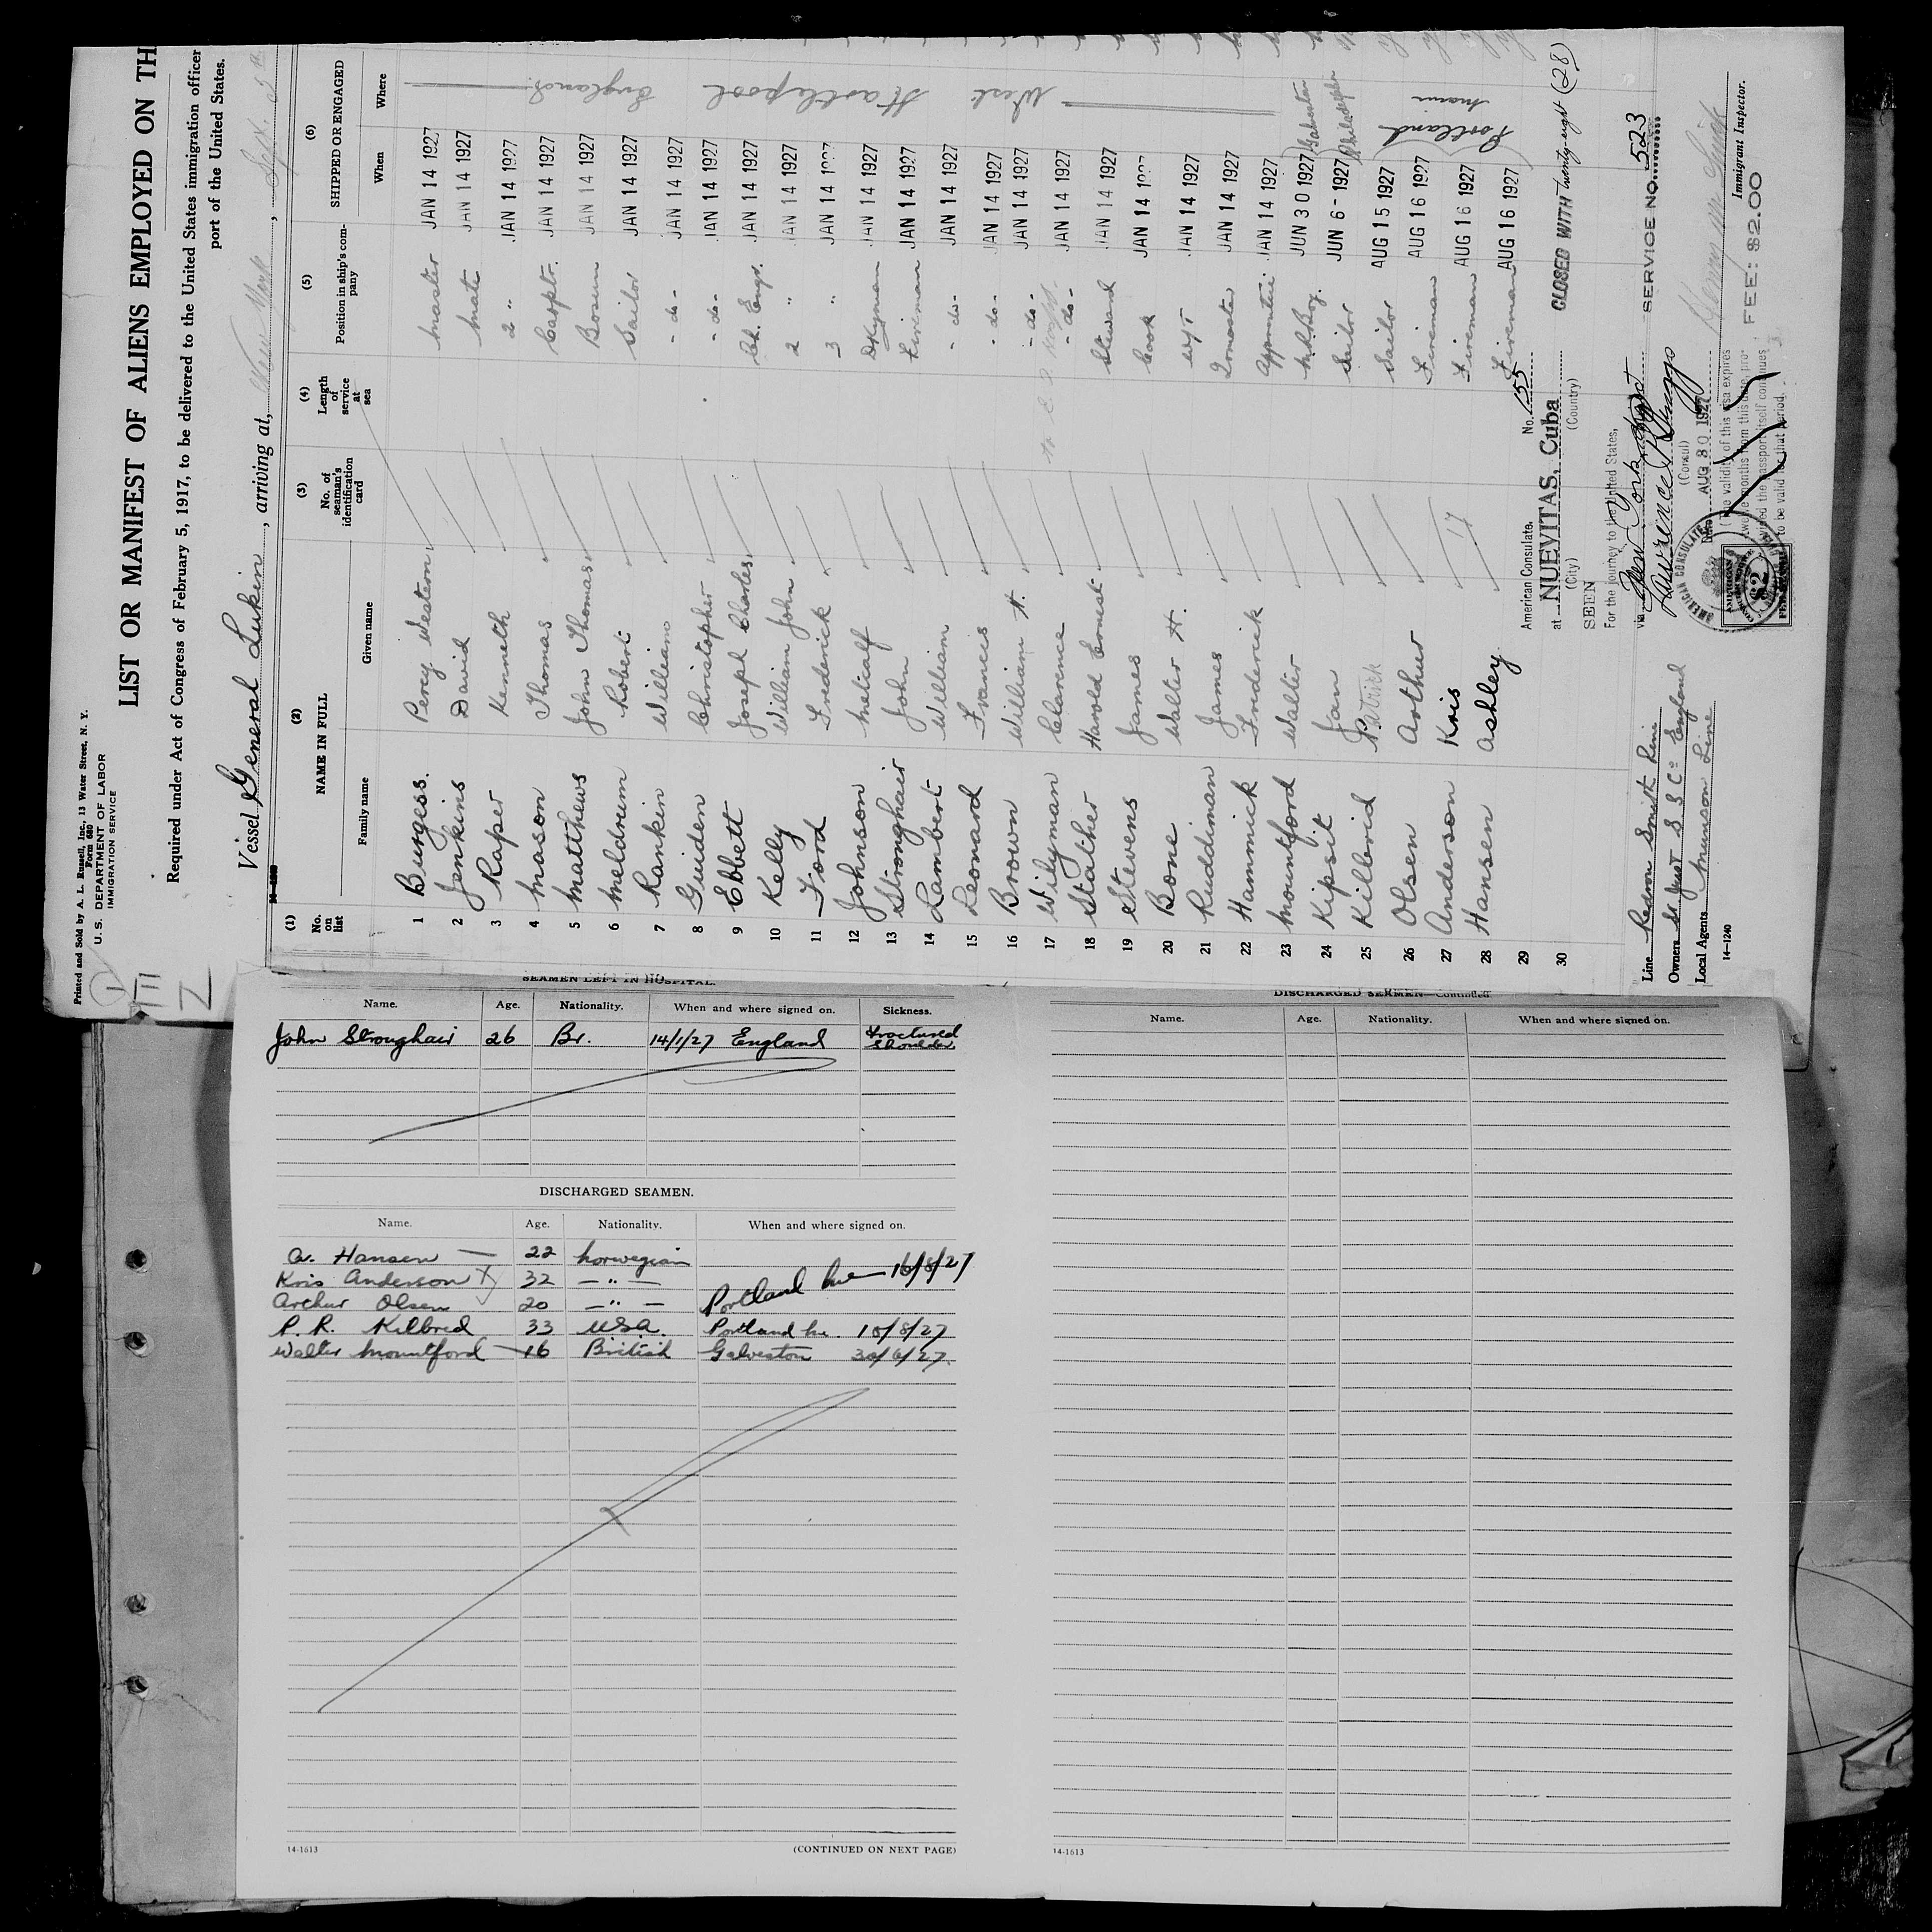 Printed and Sold by A. L. Russell, Inc., 13 Water Street, N. Y.
Form 680
U. S. DEPARTMENT OF LABOR
IMMIGRATION SERVICE
LIST OR MANIFEST OF ALIENS EMPLOYED ON TH
Required under Act of Congress of February 5, 1917, to be delivered to the United States immigration officer
port of the United States.
Vessel General Lukin, arriving at, New York, Sept. 5th
(1) (2) (3) (4) (5) (6)
No. on list NAME IN FULL No. of seaman's identification card Length of service at sea Position in ship's company SHIPPED OR ENGAGED
Family name Given name When Where
1 Burgess. Percy Weston Master JAN 14 1927
2 Jenkins David Mate JAN 14 1927
3 Raper Kenneth 2 " JAN 14 1927
4 Mason Thomas Carptr. JAN 14 1927
5 Matthews John Thomas Bosun JAN 14 1927
6 Meldrum Robert Sailor JAN 14 1927
7 Rankin William - do - JAN 14 1927
8 Guiden Christopher - do - JAN 14 1927
9 Ebbett Joseph Charles Ch. Engr. JAN 14 1927
10 Kelly William John 2 " JAN 14 1927
11 Ford Frederick 3 " JAN 14 1927
12 Johnson Metcalf Dkyman JAN 14 1927
13 Stronghair John Fireman JAN 14 1927
14 Lambert William - do - JAN 14 1927
15 Leonard Francis - do - JAN 14 1927
16 Brown William H. - do - JAN 14 1927
17 Wilyman Clarence - do - JAN 14 1927
18 Stather Harold Ernest Steward JAN 14 1927
19 Stevens James Cook JAN 14 1927
20 Bone Walter H. JAN 14 1927
21 Ruddiman James JAN 14 1927
22 Hammick Frederick Apprentice JAN 14 1927
23 Mountford Walter JUN 30 1927 Galveston
24 Kipsit Jan Sailor JUN 6 - 1927 Philadelphia
25 Kilbrid Patrick Sailor AUG 15 1927
26 Olsen Arthur Fireman AUG 16 1927
27 Anderson Kris Fireman AUG 16 1927
28 Hansen Ashley Fireman AUG 16 1927
29
30
West Hartlepool England
Portland Maine
17
CLOSED WITH twenty-eight (28)
American Consulate, No. 155
at NUEVITAS, Cuba
(City) (Country)
SEEN
For the journey to the United States,
via New York
SERVICE NO. 523
(Consul)
Date AUG 30 1927
(The validity of this visa expires
twelve months from this date, pro-
vided the passport itself continues
to be valid for that period.
FEE: $2.00
AMERICAN CONSULATE
$2
Immigrant Inspector.
Line Radson Smith Line
Owners St Just S S Co England
Local Agents Munson Line
14-1240
GEN
SEAMEN LEFT IN HOSPITAL.
Name. Age. Nationality. When and where signed on. Sickness.
John Stronghair 26 Br. 14/1/27 England Fractured Shoulder
DISCHARGED SEAMEN.
Name. Age. Nationality. When and where signed on.
A. Hansen 22 Norwegian
Kris Anderson 32 — " — Portland Me 16/8/27
Arthur Olsen 20 — " —
P. R. Kilbred 33 USA. Portland Me. 15/8/27
Walter Mountford 16 British Galveston 30/6/27
14-1613
(CONTINUED ON NEXT PAGE)
DISCHARGED SEAMEN—Continued.
Name. Age. Nationality. When and where signed on.
14-1613